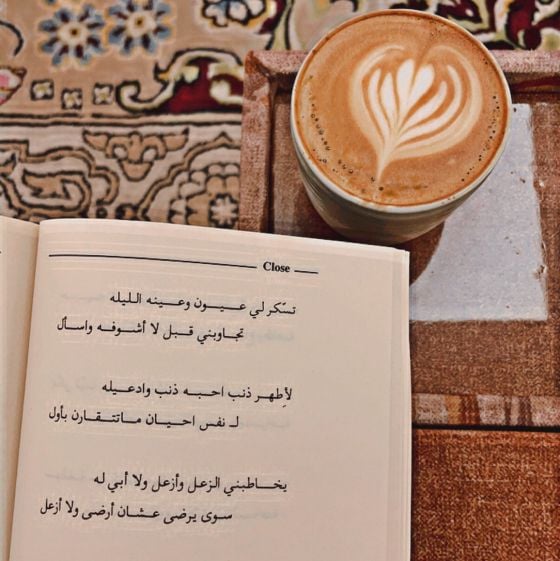 Close
تسّكر لي عـــيـــون وعـــينه الـليله
تجـاوبني قـبـل لا أشـوفـه واسـأل
لأِطهـر ذنب احبـه ذنب وادعـيله
لـ نفس احـيـان مـاتتـقـارن بـأول
يخـاطبني الزعـل وأزعـل ولا أبي له
سـوى يـرضى عـشـان أرضى ولا أزعل